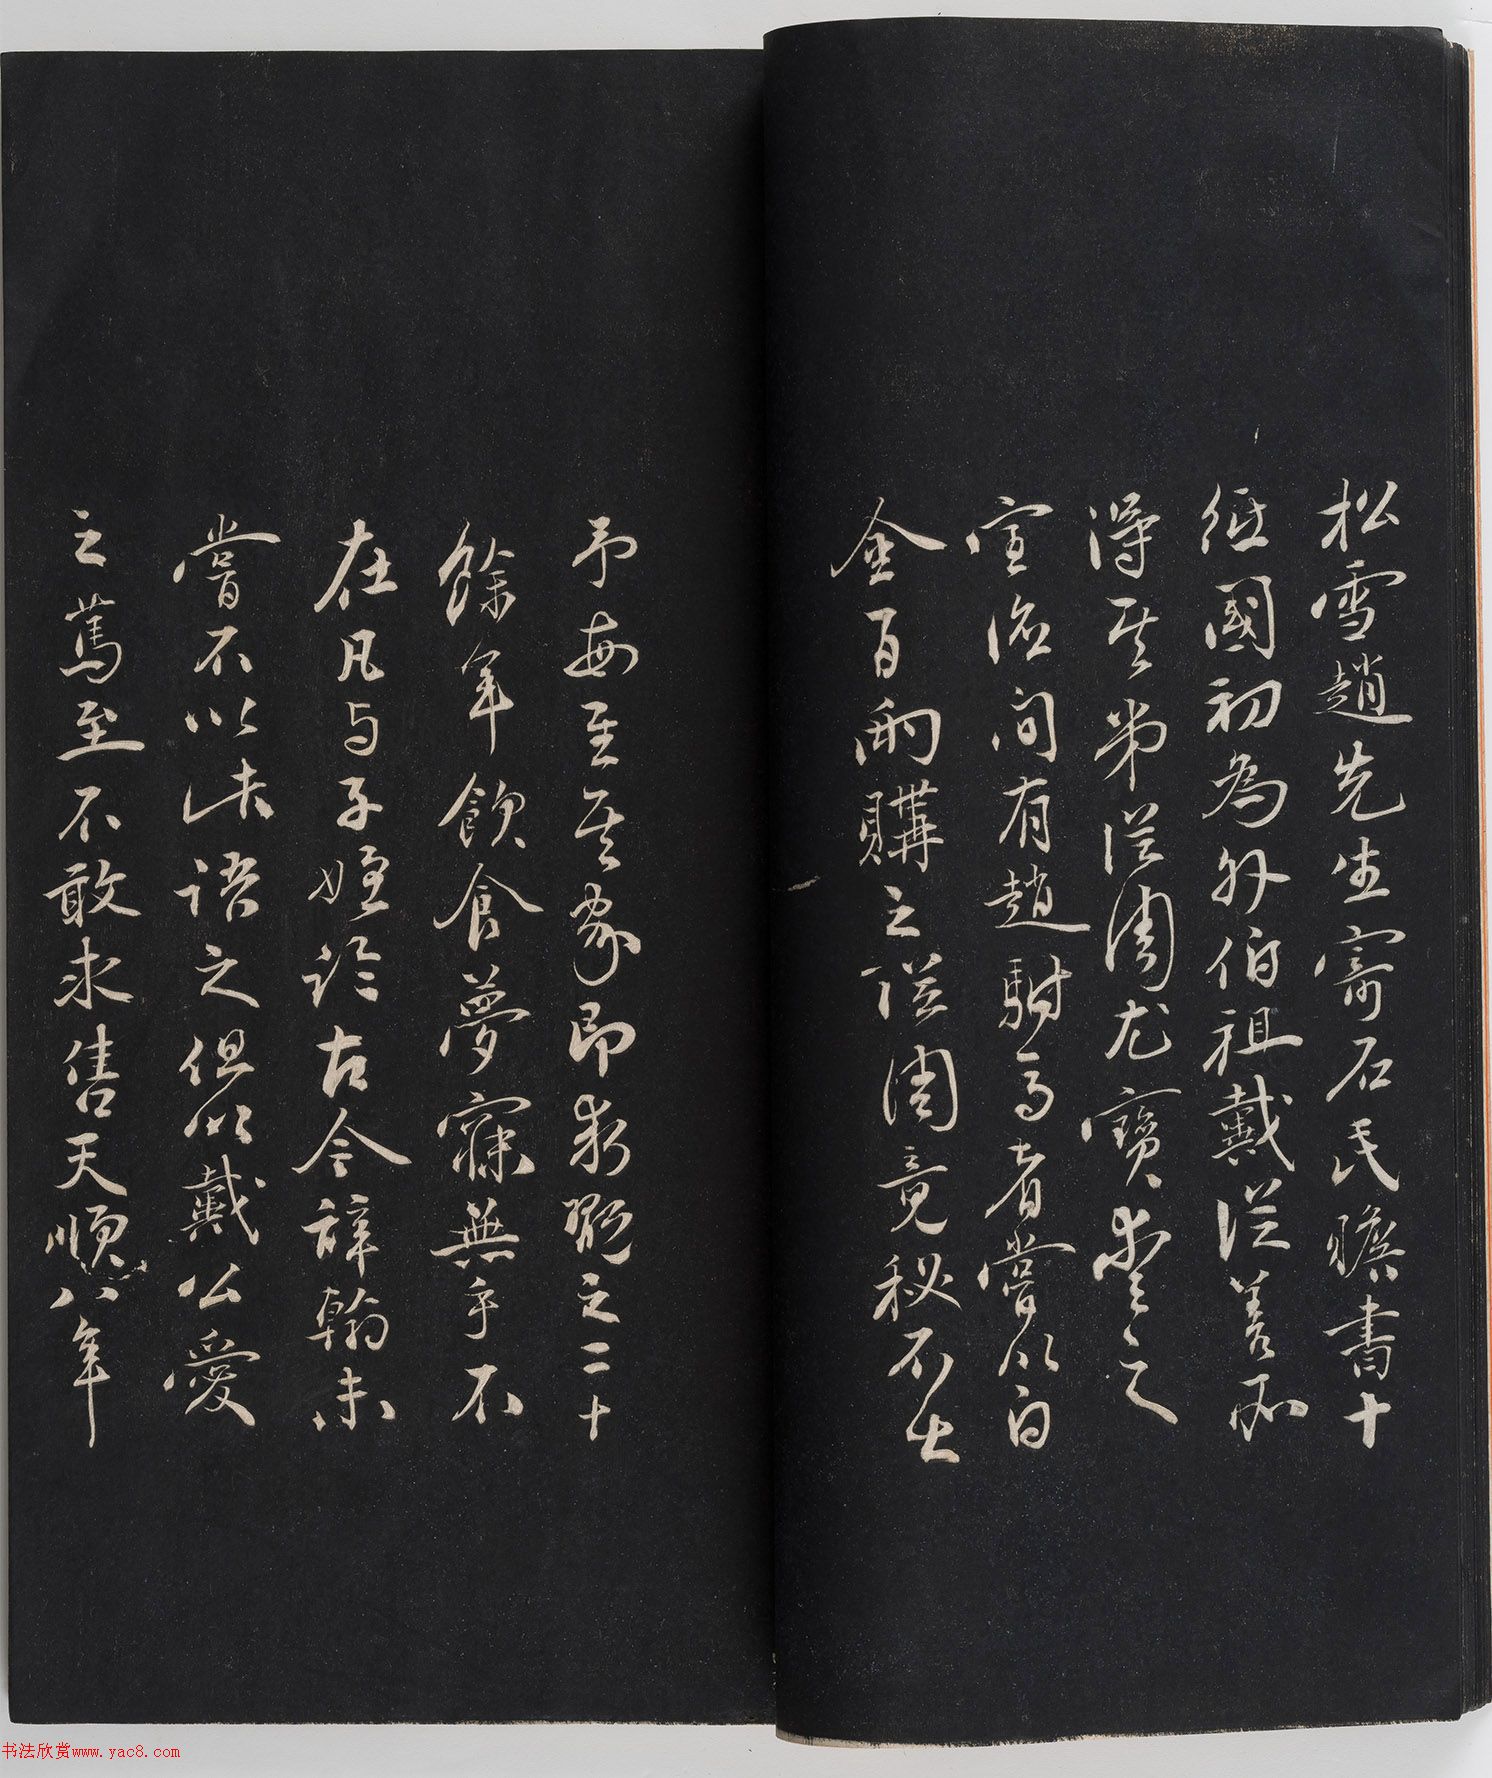 松雪趙先生寄石民瞻書十
紙國初為外伯祖戴從善所
得其弟從周尤寶愛之
宣德間有趙駙馬者嘗以白
金百兩購之從周竟秘不出
予每至其家即求觀之二十
餘年飲食夢寐無乎不
在凡与子姪論古今辭翰未
嘗不以此語之但以戴公愛
之篤至不敢求售天順八年
书法欣赏www.yac8.com